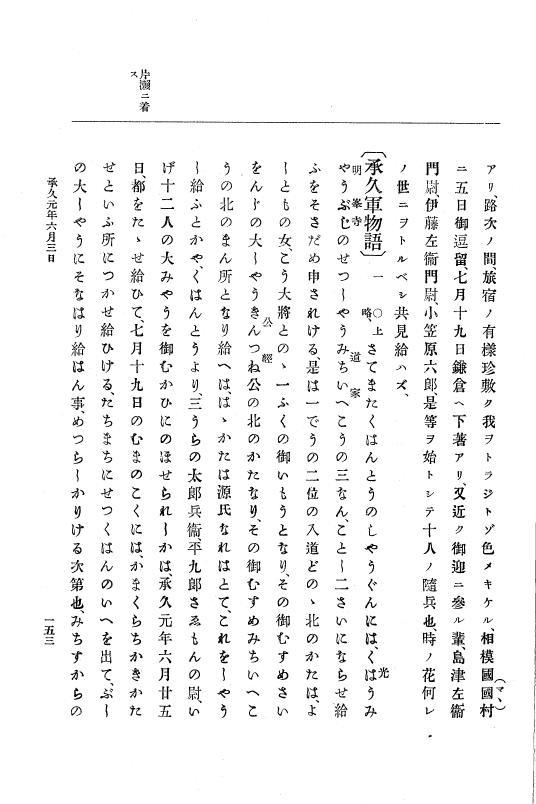 片瀬ニ着
ス
アリ、路次ノ間、旅宿ノ有樣珍敷ク我ヲトラジトゾ色メキケル、相模國國村
(マヽ)
ニ五日御逗留、七月十九日鎌倉ヘ下著アリ、又近ク御迎ニ參ル輩、島津左衞
門尉、伊藤左衞門尉、小笠原六郎、是等ヲ始トシテ十人ノ隨兵也、時ノ花何レ
ノ世ニヲトルベシ共見給ハズ、
〔承久軍物語〕 一 ○上略、さてまたくはんとうのしやうぐんには、くはうみ
光
明峯寺
道家
やうぶじのせつしやうみちいへこうの三なん、ことし二さいにならせ給
ふをそさだめ申されける、是は一でうの二位の入道どのゝ北のかたは、よ
しともの女、こう大將とのゝ一ふくの御いもうとなり、その御むすめさい
をんしの大しやうきんつね公の北のかたなり、その御むすめみちいへこ
公經
うの北のまん所となり給へは、はゝかたは源氏なれはとて、これをしやう
し給ふとかや、くはんとうより、三うらの太郎兵衞、平九郎さゑもんの尉、い
げ十二人の大みやうを御むかひにのほせられしかは、承久元年六月廿五
日、都をたゝせ給ひて、七月十九日のむまのこくには、かまくらちかきかた
せといふ所につかせ給ひける、たちまちにせつくはんのいへを出て、ぶし
の大しやうにそなはり給はん事、めつらしかりける次第也、みちすからの
承久元年六月三日
一五三